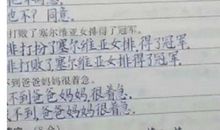 也不同意。
打败了塞尔维亚女排得了冠军。
排打扮了塞尔维亚女排,得了冠军
排打败了塞尔维亚女排得了冠军.
不到爸爸妈妈很着急。
不到爸爸妈妈很着急.
不到,爸爸妈妈很着急.